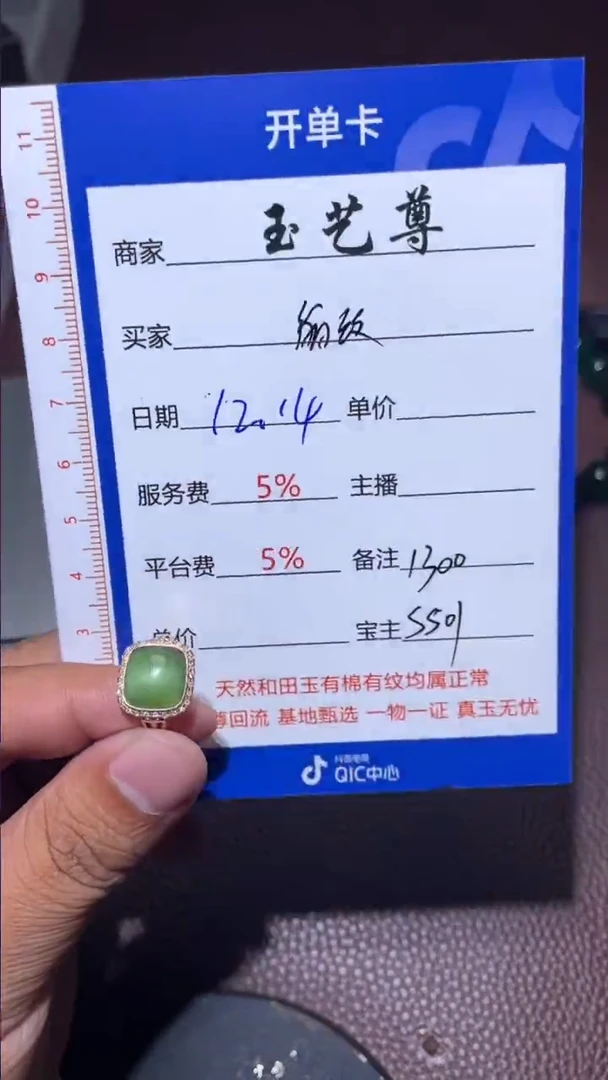 开单卡
商家 玉艺尊
买家
日期 12.14 单价
服务费 5% 主播
平台费 5% 备注 1300
总价 宝主 S501
天然和田玉有棉有纹均属正常
尊回流 基地甄选 一物一证 真玉无忧
抖音电商
QIC中心
11
10
9
8
7
6
5
4
3